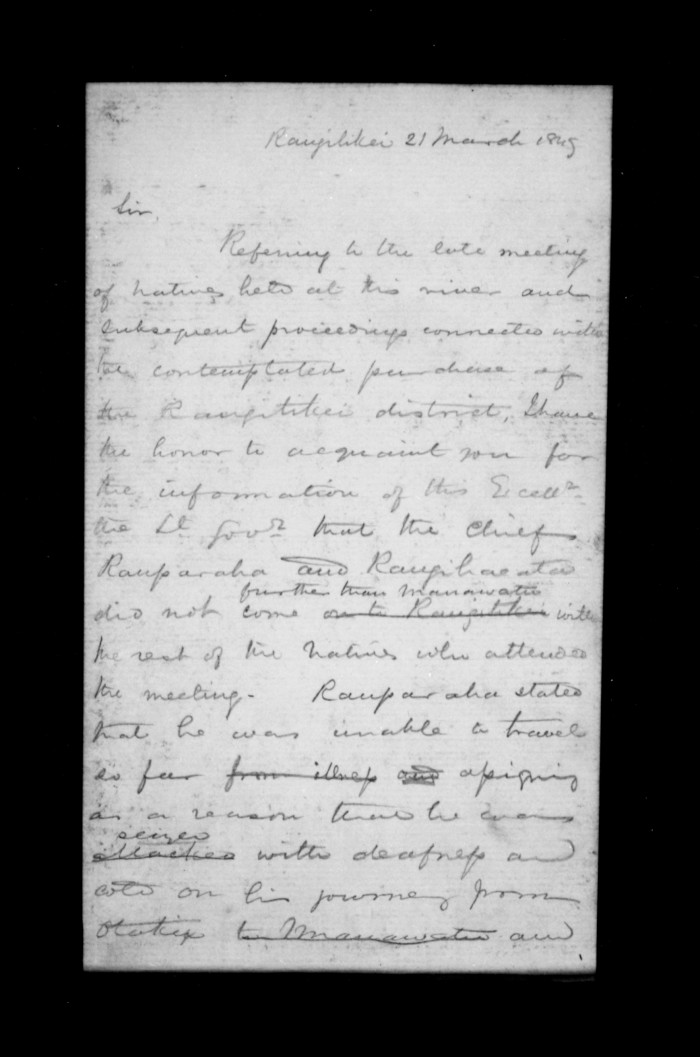 Rangitikei 21 March 1849
Sir,
Referring to the late meeting
of natives held at this river and
subsequent proceedings connected with
the contemplated purchase of
the Rangitikei district, I have
the honor to acquaint you for
the information of His Excellr
the Lt Govr that the chiefs
Rauparaha and Rangihaeata
further than Manawatu
did not come on to Rangitikei with
the rest of the Natives who attended
the meeting. Rauparaha stated
that he was unable to travel
so far from illness and assigning
as a reason that he was
seized
attacked with deafness and
cold on his journey from
Otaki to Manawatu and